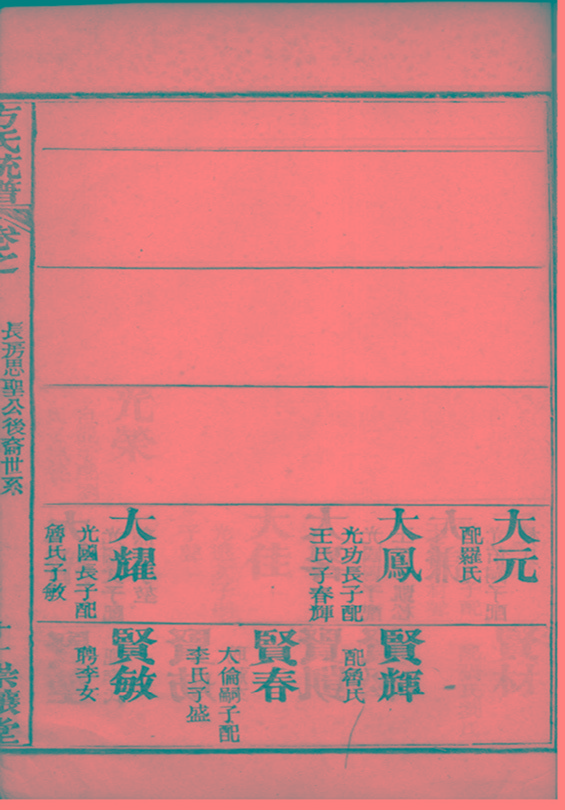 大元
配羅氏
大鳳
光功長子配
王氏子春輝
大耀
光國長子配
詹氏子敏
賢輝
配魯氏
賢春
大倫嗣子配
李氏子盛
賢敏
聘李女
方氏統譜
卷之
長房思聖公後裔世系
堂